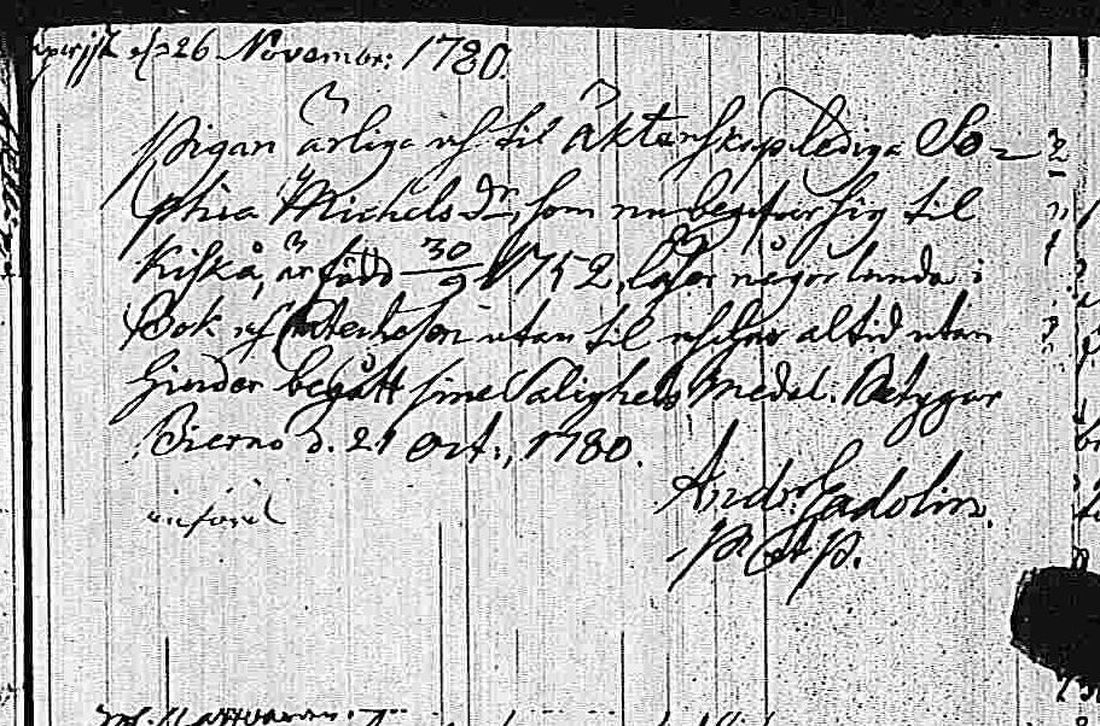 26 Novembr: 1780.
Pigan ärliga och til Äktenskap lediga So=
phia Michels Dr, som nu begifver sig til
Kiskå, är född 30/9 1752, läser någorlunda i
Bok och Catechesen utan til och har altid utan
hinder begått sine Salighets Medel. Betygar
Bierno d. 21 Oct:, 1780.
Andr. Gadolin.
P. et P.
införd